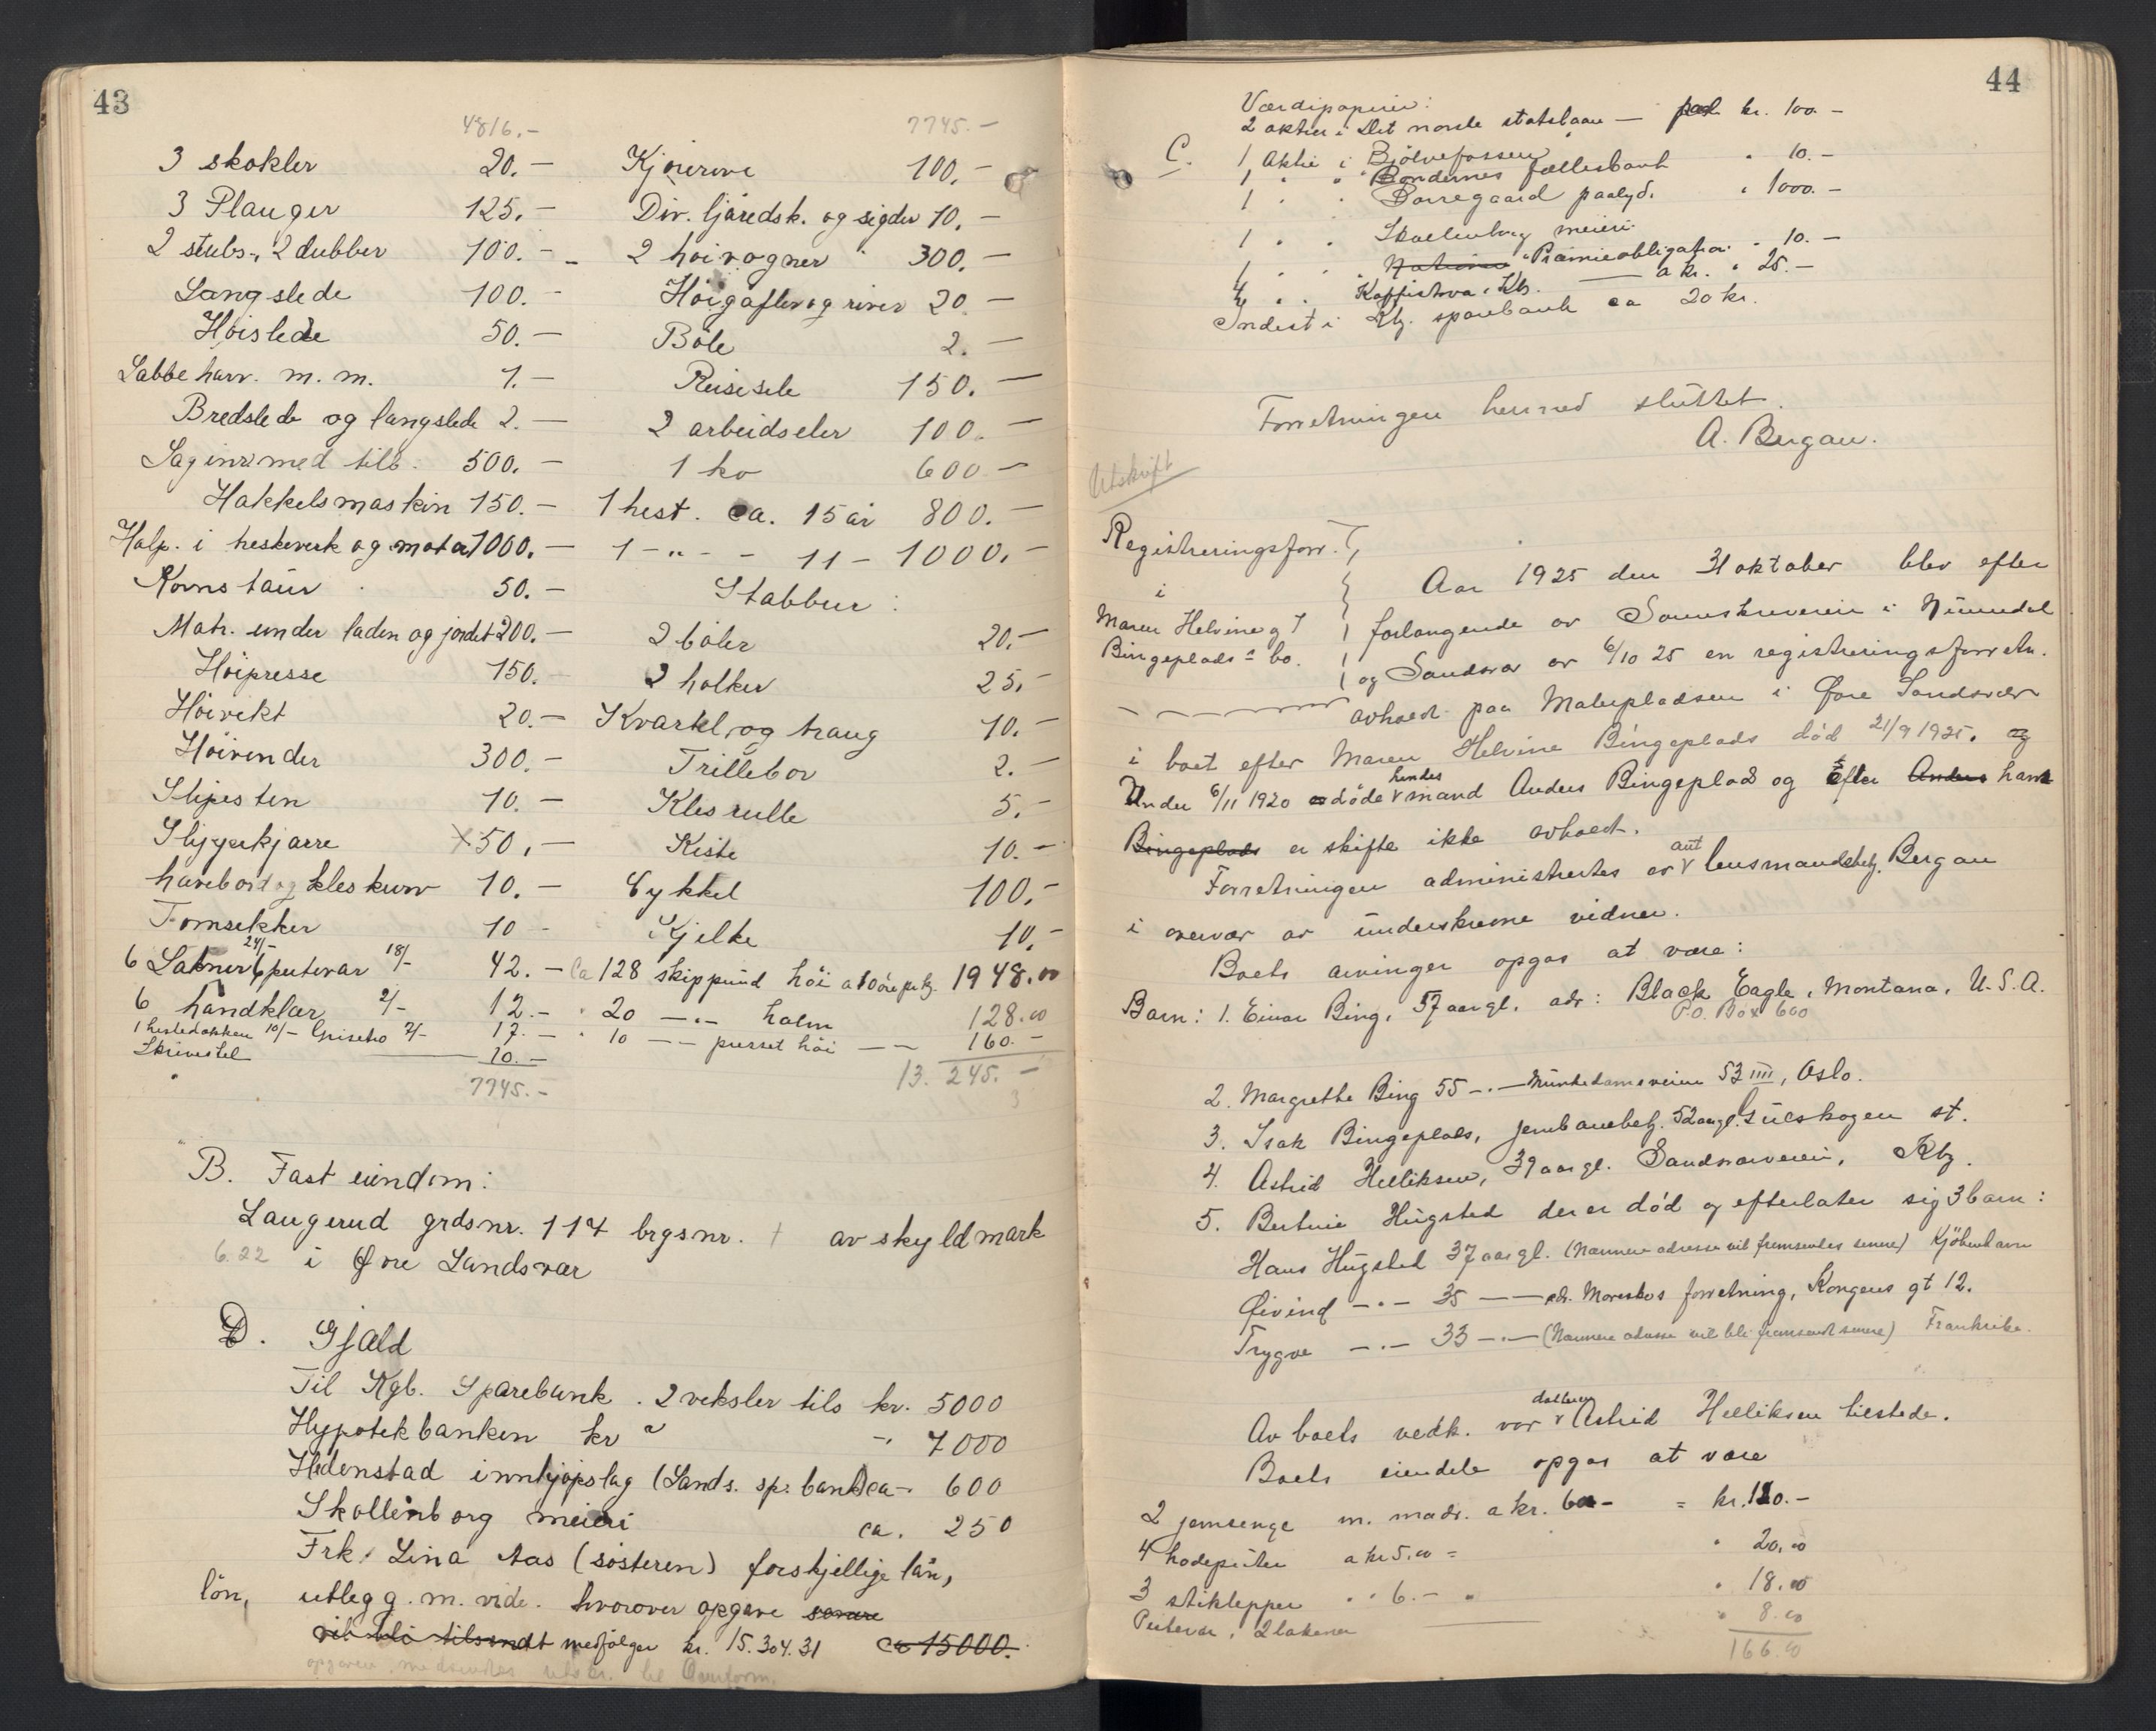 43
4816.-
3 skokler 20.-
3 Plauger 125.-
2 stubs., 2 dubber 100.-
Langslede 100.-
Høislede 50.-
Labbeharv. m.m. 1.-
Bredslede og langslede 2.-
Saginr. med tilb. 500.-
Hakkelsmaskin 150.-
Halp. i treskeverk og motor 1000.-
Kornstaur 50.-
Matr. under laden og jordet 200.-
Høipresse 150.-
Høivekt 20.-
Høivender 300.-
Slipesten 10.-
Slyggekjærre 50.-
havebord og kleskurv 10.-
Tomsekker 10-
6 Lakner 24/- 6 putevar 18/- 42.-
6 handklær 2/- 12.-
1 hestedækken 10/- Griseho 7/- 17.-
Skrivestel 10.-
7745.-
7745.-
Kjørerive 100.-
Div. ljåredsk. og sigder 10.-
2 høivogner 300.-
Høigafler og river 20.-
Bøle 2.-
Reisesele 150.-
2 arbeidseler 100.-
1 ko 600-
1 hest. ca. 15 år 800.-
1 -"- - 11 - 1000.-
Stabbur:
2 bøler 20.-
2 holker 25.-
Kvartel og traug 10.-
Trillebor 2.-
Klesrulle 5.-
Kiste 10.-
Cykkel 100.-
Kjelke 10.-
Ca 128 skippund høi a 10 øre pr. kg. 1948.00
" 20 -"- halm 128.00
" 10 -- presset høi -- 160.-
13.245.-
B. Fast eiendom:
Laugerud grdsnr. 114 brgsnr. 1 av skyldmark
6.22 i Øvre Sandsvær
D. Gjæld
Til Kgb. Sparebank. 2 veksler tils kr. 5000
Hypotekbanken kr " -. 7000
Hedenstad innkjøpslag (Sands. sp. bank) ca - 600
Skollenborg meieri ca. 250
Frk. Lina Aas (søsteren) forskjellige lån,
løn, utlegg. m. vide. hvorover opgave senere
vil bli tilsendt medfølger kr. 15.304.31 ca 15000.
44
Værdipapirer:
2 aktier i Det norske statslaan - kr. 100-
C. 1 Aktie i Bjølvefossen " 10.-
1 " " Bøndernes fællesbank
1 " " Borregaard paalyd. " 1000.-
1 " " Skollenborg meieri
1 " " Præmieobligation " 10.-
4 " " Kaffistova i Kb. a kr. " 25.-
Indest. i Kbg. sparebank ca 20 kr.
Forretningen hermed sluttet.
A. Bergan.
Utskrift
Registreringsforr.
i
Maren Helvine
Bingeplads's bo.
Aar 1925 den 31 oktober blev efter
forlangende av Sorenskriveren i Numedal
og Sandsvær av 6/10 25 en registreringsforretn.
avholdt paa Malerpladsen i Øvre Sandsvær
i boet efter Maren Helvine Bingeplads død 21/9 1925. og
Under 6/11 1920 døde hendes mand Anders Bingeplads og Efter Anders ham
Bingeplads er skifte ikke avholdt.
Forretningen administrertes av aut lensmandsbetj. Bergan
i overvær av underskrevne vidner.
Boets arvinger opgas at være:
Barn: 1. Einar Bing, 57 aar gl. adr: Black Eagle, Montana, U.S.A.
P.O. Box 600
2. Margrethe Bing 55 -"- Munkedamsveien 53 IIII, Oslo.
3. Isak Bingeplads, jernbanebetj. 52 aar gl. Luleskogen st.
4. Astrid Helliksen, 39 aar gl. Sandsværveien, Kbg.
5. Bertine Hugsted der er død og efterlater sig 3 barn:
Hans Hugsted 37 aar gl. (Nærmere adresse vil fremsendes senere) Kjøbenhavn
Øivind -"- 35 -- adr. Morestøs forretning, Kongens gt 12.
Trygve -"- 33 -"- (Nærmere adresse vil bli fremsendt senere) Frankrike.
Av boets vedk. var datteren Astrid Helliksen tilstede.
Boets eiendele opgas at være
2 jernsenge m. madr. a kr. 60- = kr. 120.-
4 hodeputer a kr 5.00 = " 20.00
3 stiklepper " " 6.- " " 18.00
Putevar, 2 lakener " 8.00
166.00